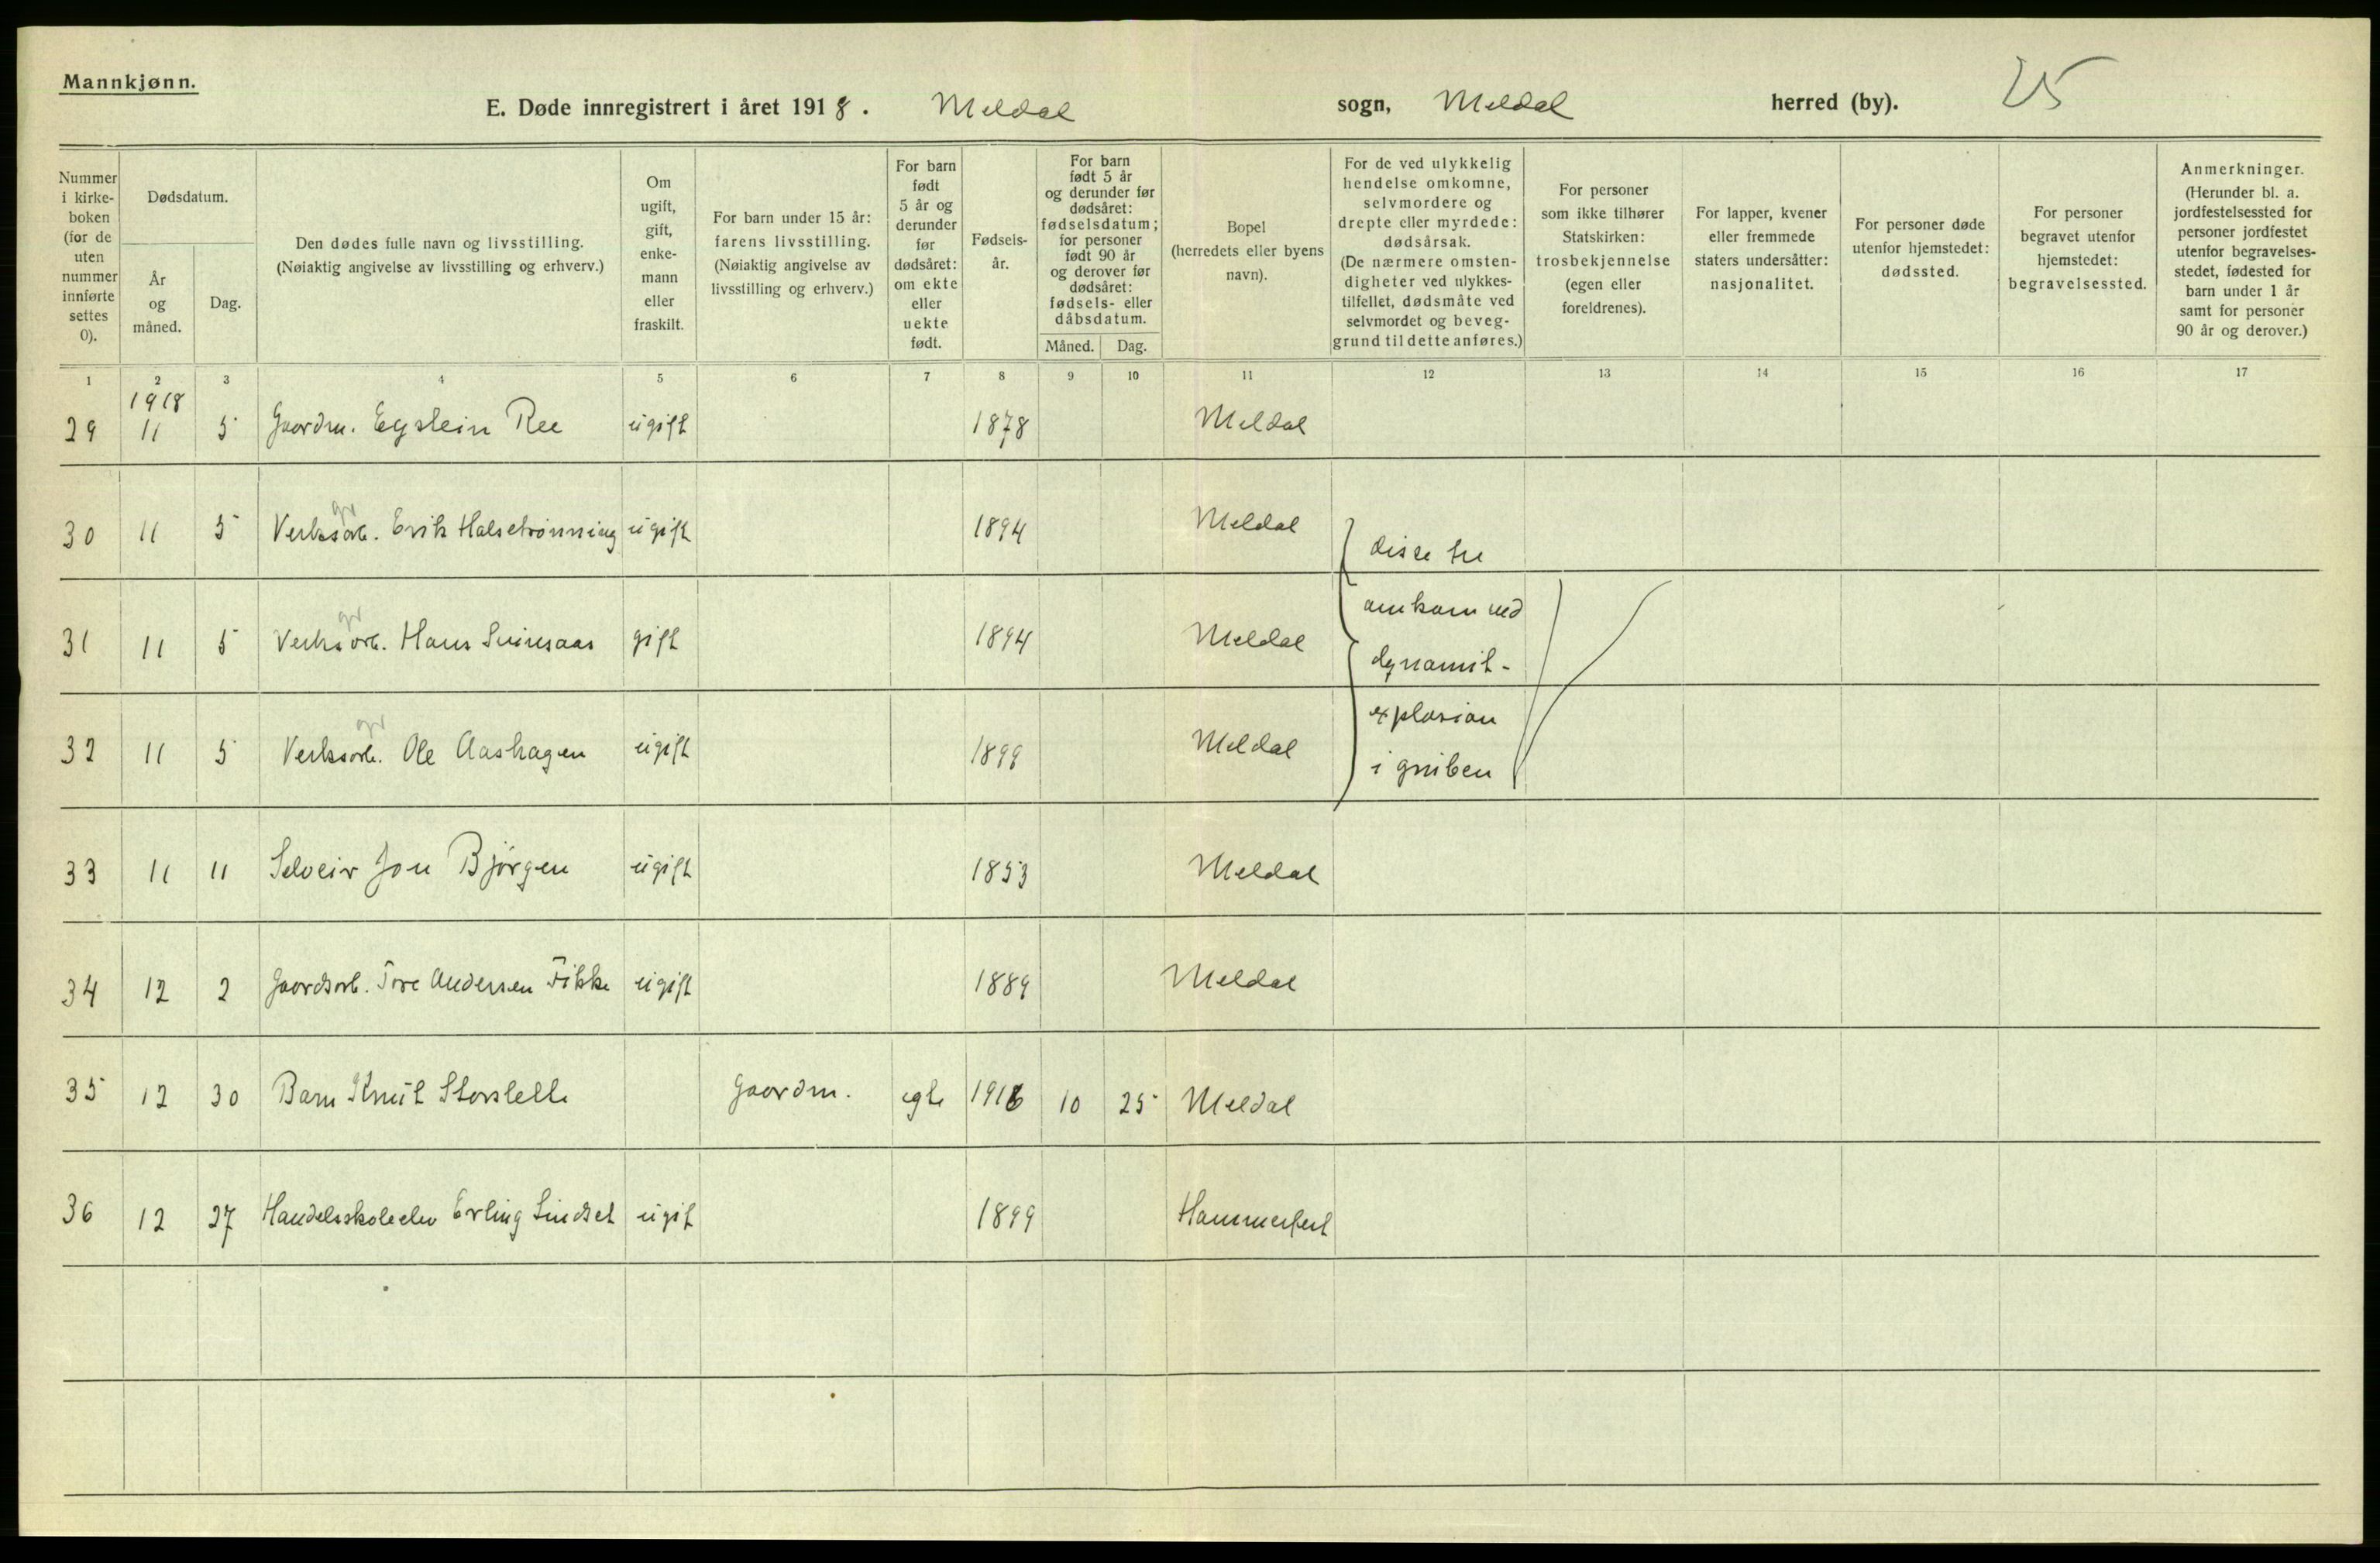 Mannkjønn.
E. Døde innregistrert i året 1918. Meldal sogn, Meldal herred (by). 25
Nummer i kirke- boken (for de uten nummer innførte settes 0).
Dødsdatum.
År og måned.
Dag.
Den dødes fulle navn og livsstilling.
(Nøiaktig angivelse av livsstilling og erhverv.)
Om ugift, gift, enke- mann eller fraskilt.
For barn under 15 år: farens livsstilling. (Nøiaktig angivelse av livsstilling og erhverv.)
For barn født 5 år og derunder før dødsåret: om ekte eller uekte født.
Fødsels- år.
For barn født 5 år og derunder før dødsåret: fødselsdatum; for personer født 90 år og derover før dødsåret: fødsels- eller dåbsdatum.
Måned. Dag.
Bopel (herredets eller byens navn).
For de ved ulykkelig hendelse omkomne, selvmordere og drepte eller myrdede: dødsårsak. (De nærmere omsten- digheter ved ulykkes- tilfellet, dødsmåte ved selvmordet og beveg- grund til dette anføres.)
For personer som ikke tilhører Statskirken: trosbekjennelse (egen eller foreldrenes).
For lapper, kvener eller fremmede staters undersåtter: nasjonalitet.
For personer døde utenfor hjemstedet: dødssted.
For personer begravet utenfor hjemstedet: begravelsessted.
Anmerkninger. (Herunder bl. a. jordfestelsessted for personer jordfestet utenfor begravelses- stedet, fødested for barn under 1 år samt for personer 90 år og derover.)
1 2 3 4 5 6 7 8 9 10 11 12 13 14 15 16 17
1918
29 11 5 Gaardm. Eystein Ree ugift 1878 Meldal
gr
30 11 5 Verksarb. Erik Halsetrønning ugift 1894 Meldal
disse tre
gr
omkom ved
31 11 5 Verksarb. Hans Svinsaas gift 1894 Meldal
dynamit-
gr
explosion
32 11 5 Verksarb. Ole Aashagen ugift 1899 Meldal
i gruben
33 11 11 Selveir Jon Bjørgen ugift 1853 Meldal
34 12 2 Gaardsarb. Tore Andersen Fikke ugift 1889 Meldal
35 12 30 Barn Knut Storslette Gaardm. egte 1916 10 25 Meldal
36 12 27 Handelsskoleelev Erling Lindset ugift 1899 Hammerfest